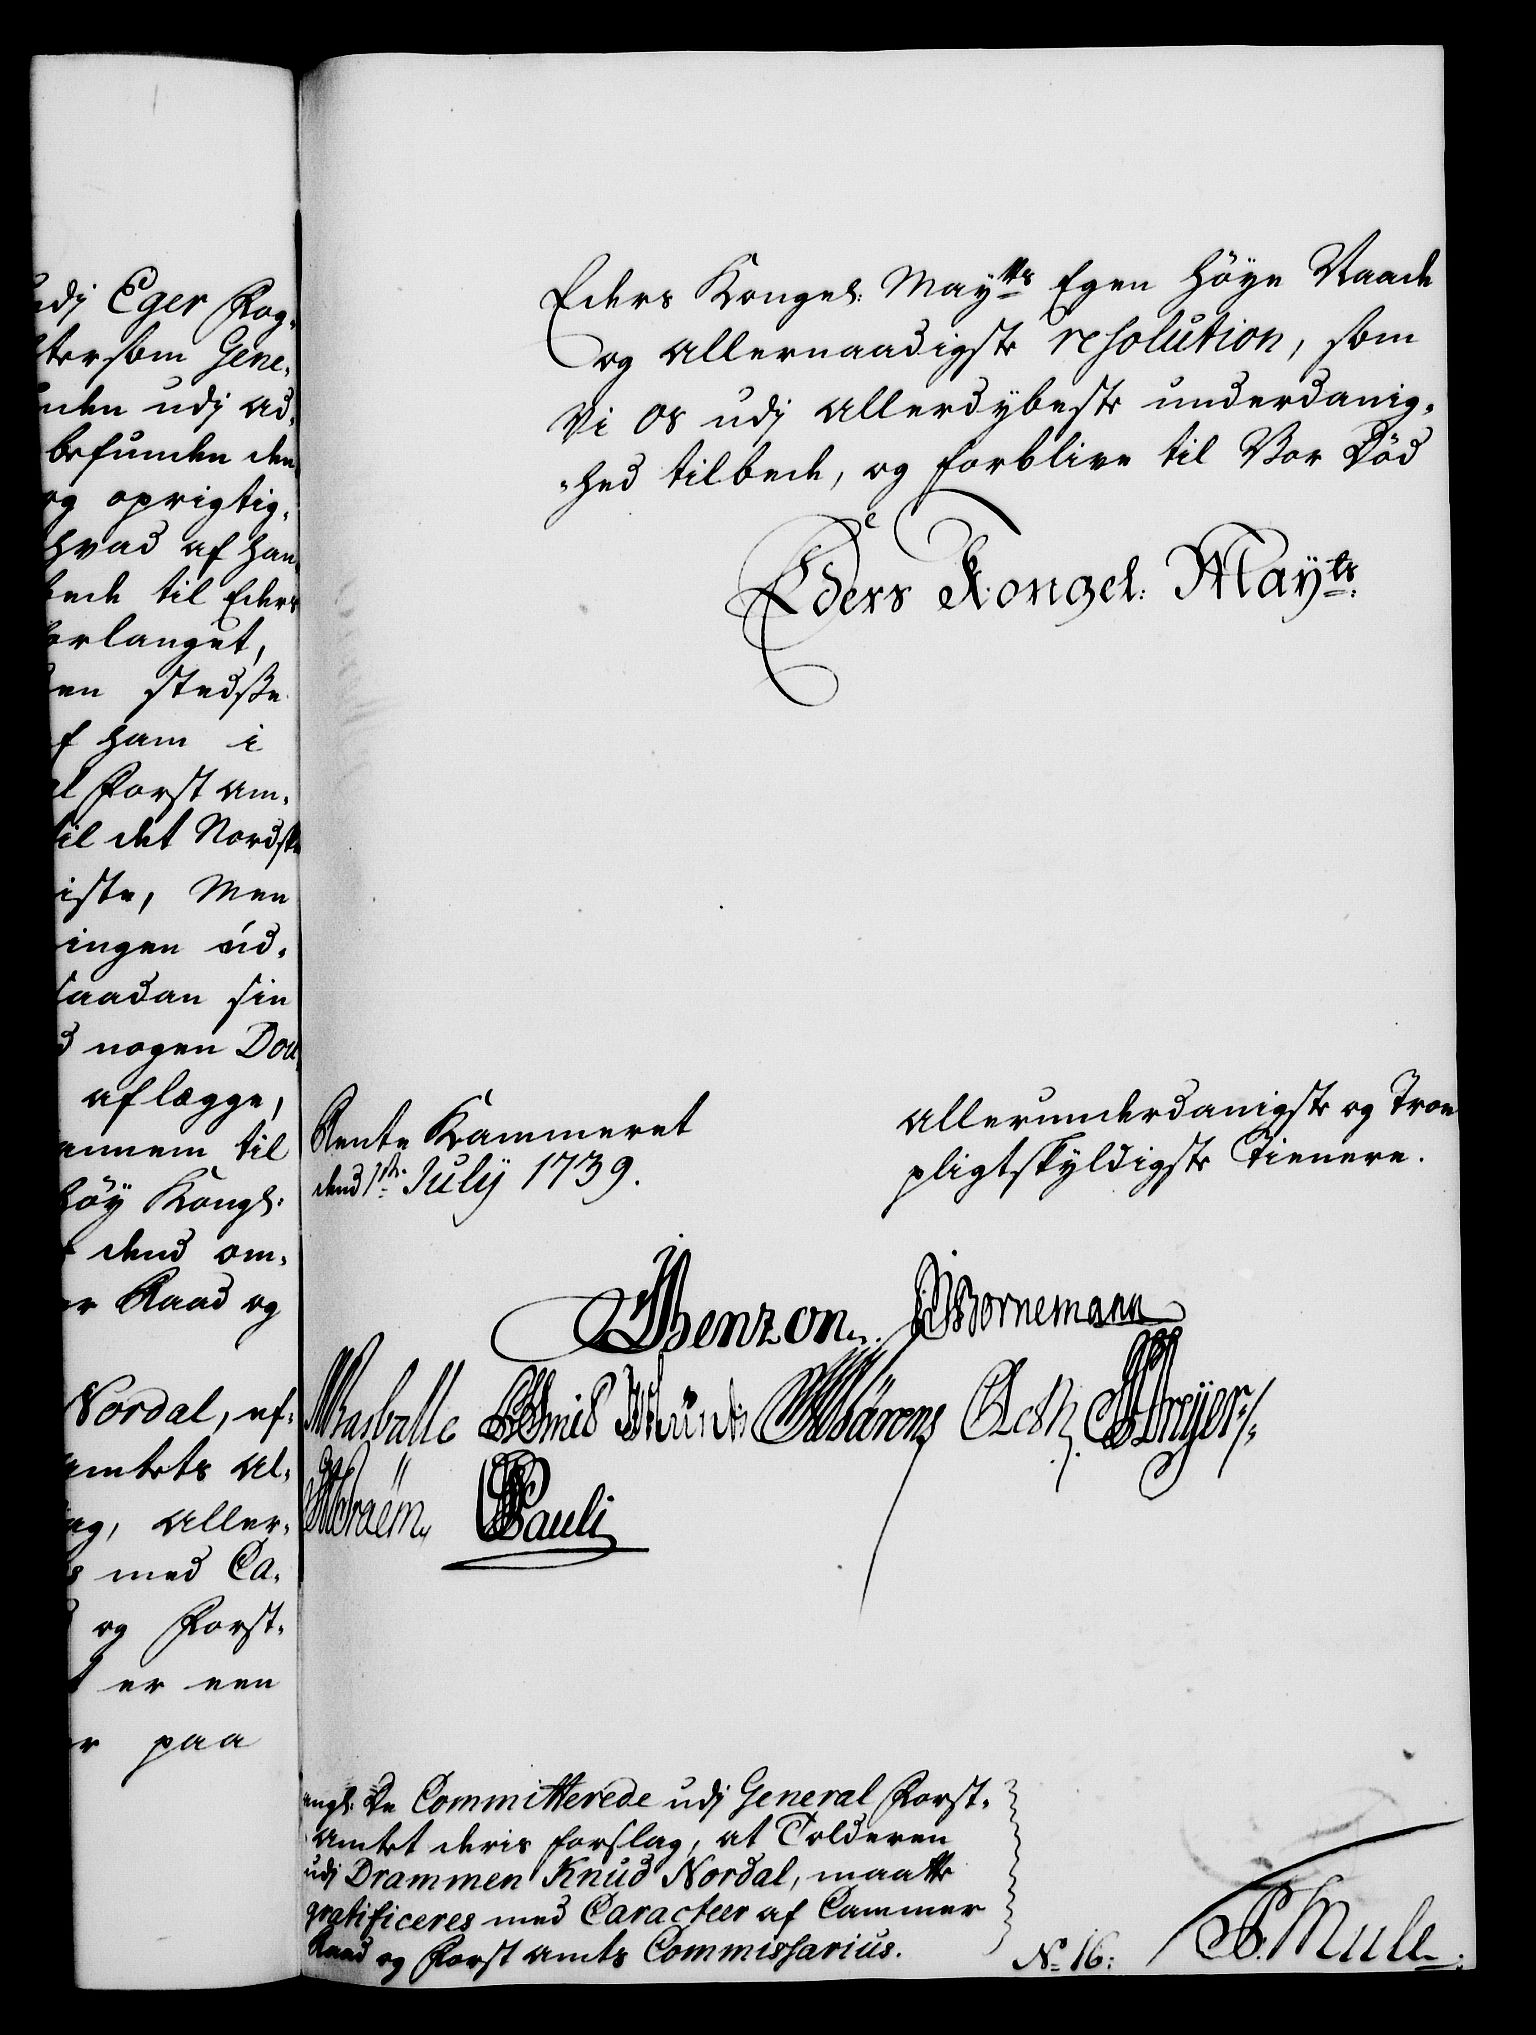 udj Eger Fog-
tersom Gene-
nden udj Ad-
befunden den
og oprigtig-
hvad af han
bede til Eders
forlanget,
en stedsse
af ham i
al Forst Am-
til det Nordske
iste, Men
ingen úd-
saadan sin
d nogen Dou
aflægge,
annem til
höÿ Kongl:
dend om-
er Raad og
Nordal, ef-
amtets Al-
ag, Aller-
s med Ca-
og Forst-
t er een
er paa
Eders Kongel: Mayᵗᵗˢ Egen höye Naade
og allernaadigste resolution, som
Vi os udj allerdybeste underdanig-
-hed tilbede, og forblive til Vor Död
Eders Kongel: Maÿᵗˢ:
Rente Kammeret
dend 1ste Julÿ 1739.
allerunderdanigste og Troe
pligtskyldigste Tienere.
Benzon. Bornemann
Pauli
angl. De Committerede udj General Forst-
Amtet deris forslag, at Tolderen
udj Drammen Knud Nordal, maatte
gratificeres med Caracteer af Cammer
Raad og Forst Amts Commissarius.
No 16:
Mule